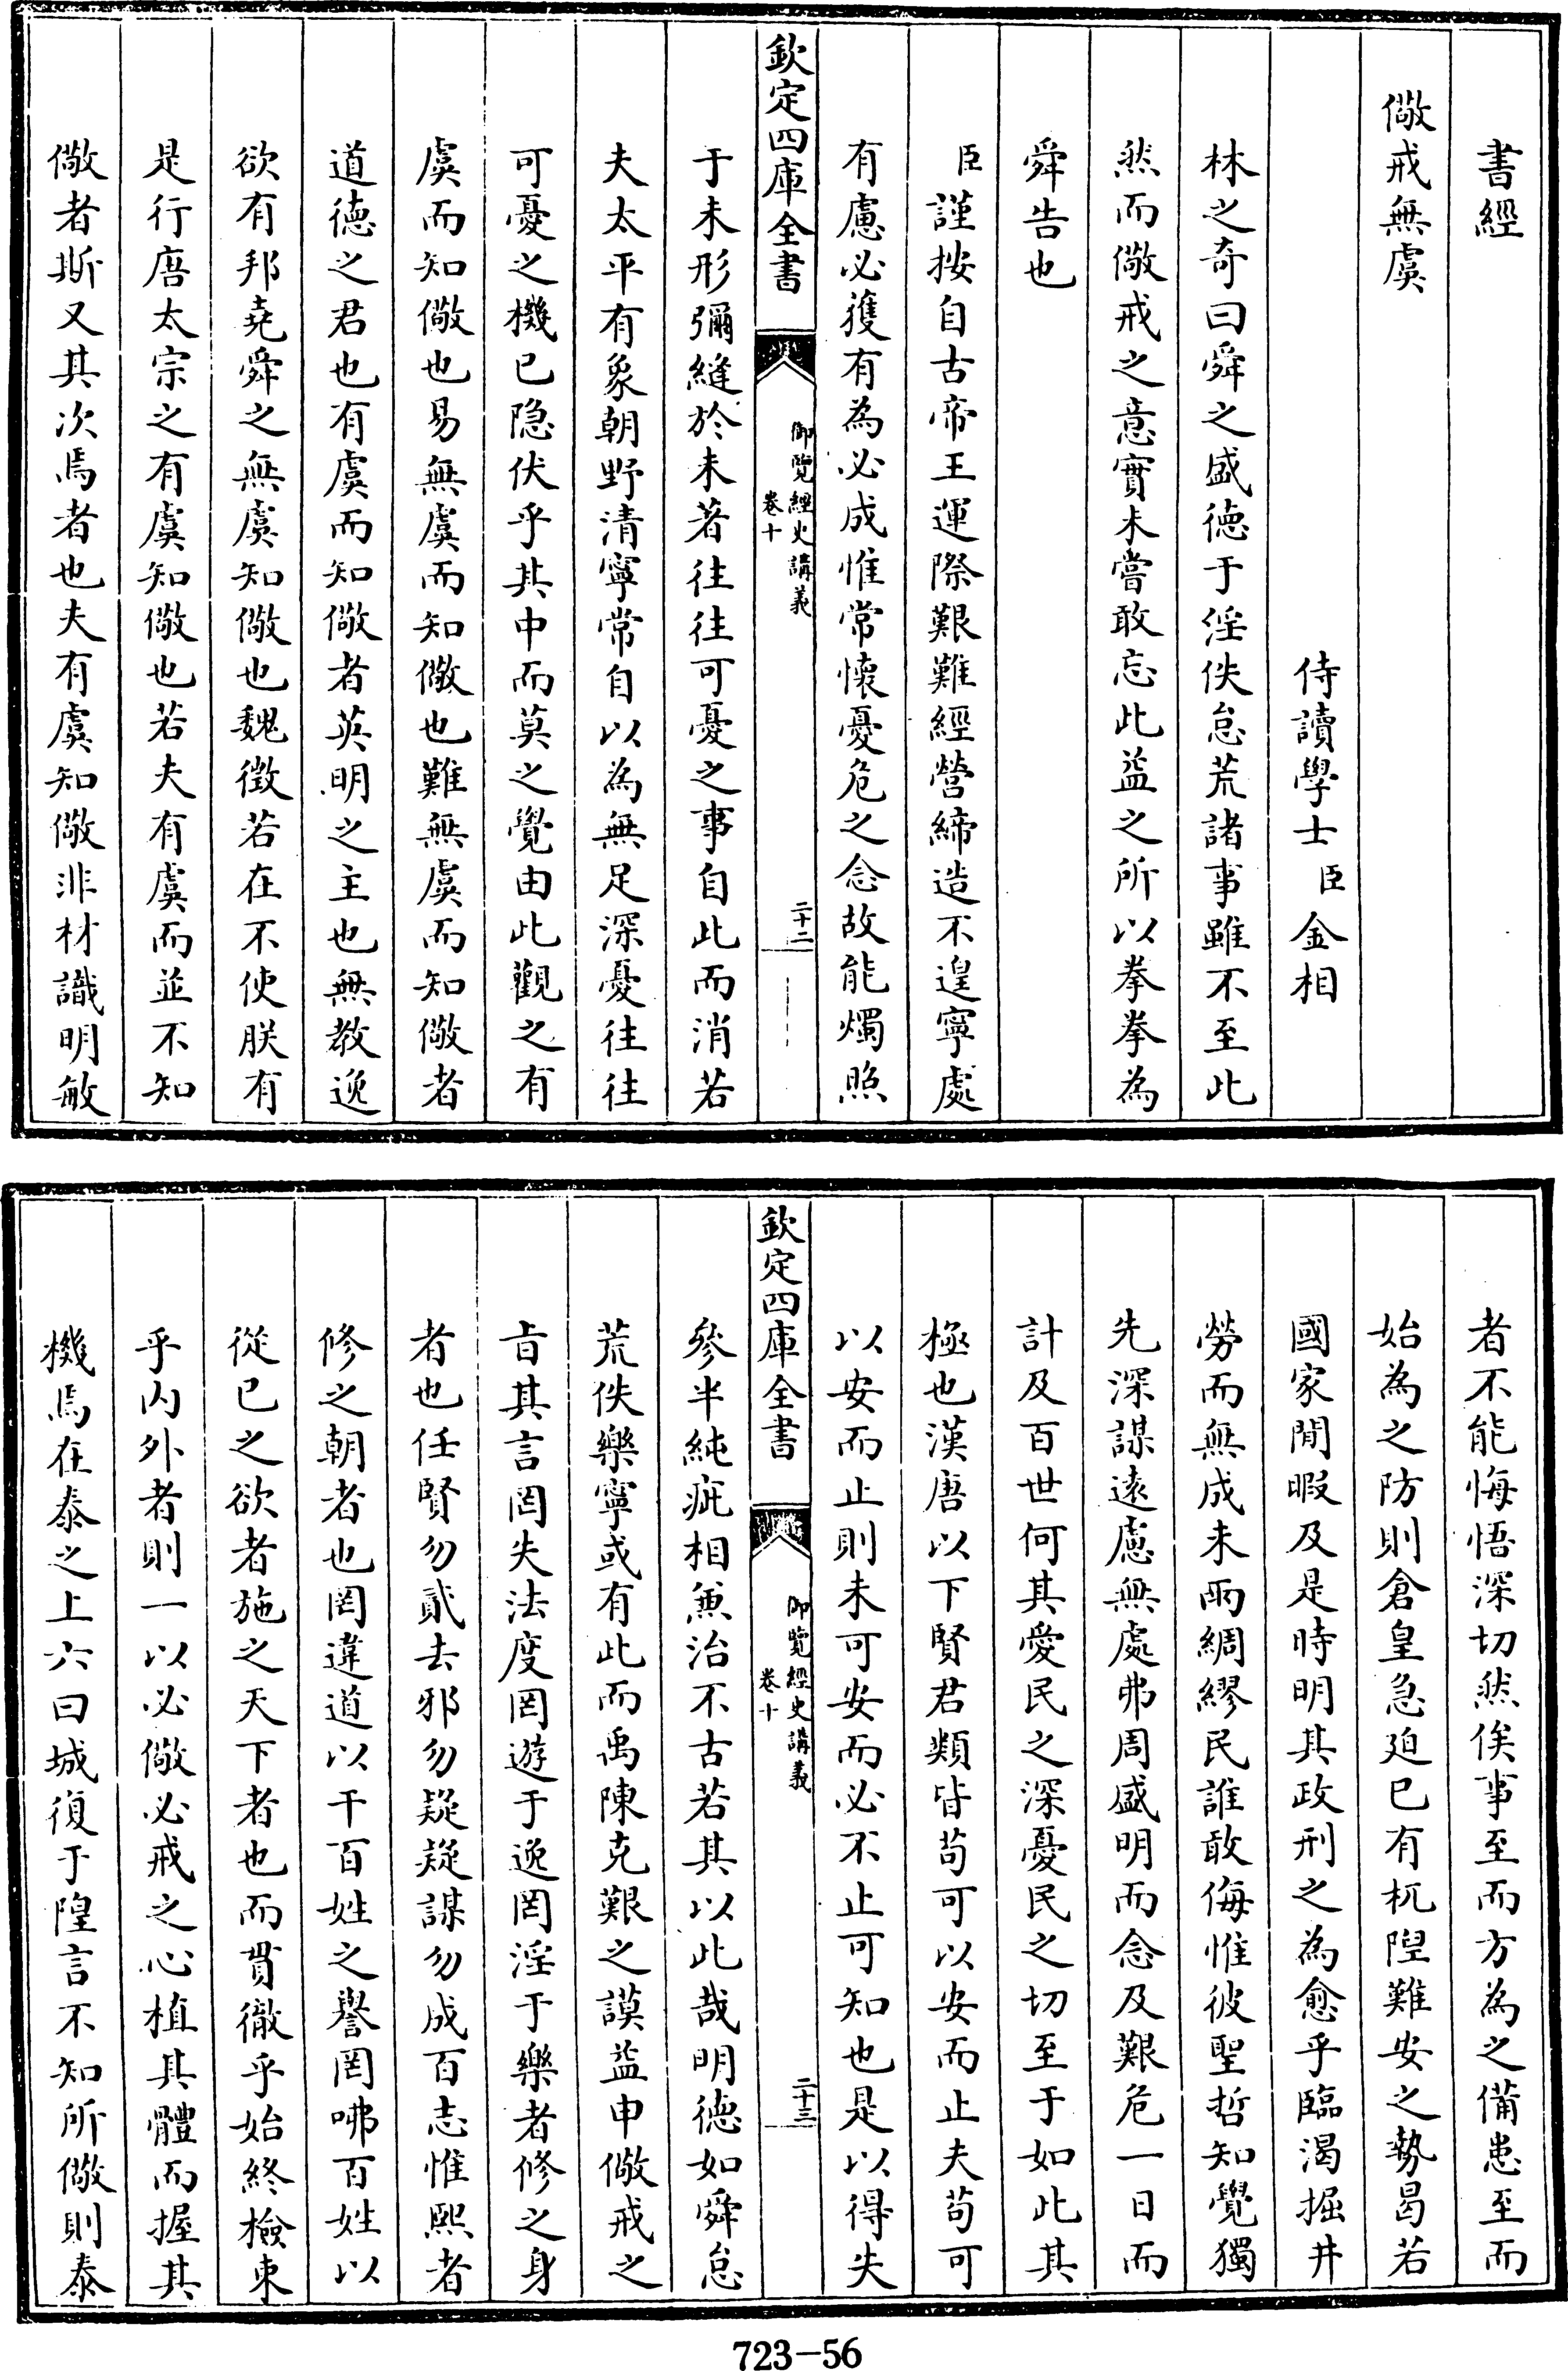 書經
儆戒無虞
侍讀學士臣金相
林之奇曰舜之盛德于淫佚怠荒諸事雖不至此
然而儆戒之意實未嘗敢忘此益之所以拳拳為
舜告也
臣謹按自古帝王運際艱難經營締造不遑寧處
有慮必獲有為必成惟常懷憂危之念故能燭照
欽定四庫全書
御覽經史講義
卷十
二十二
于未形彌縫於未著往往可憂之事自此而消若
夫太平有象朝野清寧常自以為無足深憂往往
可憂之機已隐伏乎其中而莫之覺由此觀之有
虞而知儆也易無虞而知儆也難無虞而知儆者
道德之君也有虞而知儆者英明之主也無教逸
欲有邦堯舜之無虞知儆也魏徵若在不使朕有
是行唐太宗之有虞知儆也若夫有虞而並不知
儆者斯又其次焉者也夫有虞知儆非材識明敏
者不能悔悟深切然俟事至而方為之備患至而
始為之防則倉皇急廹已有杌隉難安之勢曷若
國家閒暇及是時明其政刑之為愈乎臨渴掘井
勞而無成未雨綢繆民誰敢侮惟彼聖哲知覺獨
先深謀遠慮無處弗周盛明而念及艱危一日而
計及百世何其愛民之深憂民之切至于如此其
極也漢唐以下賢君類皆苟可以安而止夫苟可
以安而止則未可安而必不止可知也是以得失
欽定四庫全書
御覽經史講義
卷十
二十三
參半純疵相兼治不古若其以此哉明德如舜怠
荒佚樂寧或有此而禹陳克艱之謨益申儆戒之
旨其言罔失法度罔遊于逸罔淫于樂者修之身
者也任賢勿貳去邪勿疑疑謀勿成百志惟熙者
修之朝者也罔違道以干百姓之譽罔咈百姓以
從已之欲者施之天下者也而貫徹乎始終檢束
乎内外者則一以必儆必戒之心植其體而握其
機焉在泰之上六曰城復于隍言不知所儆則泰
723-56